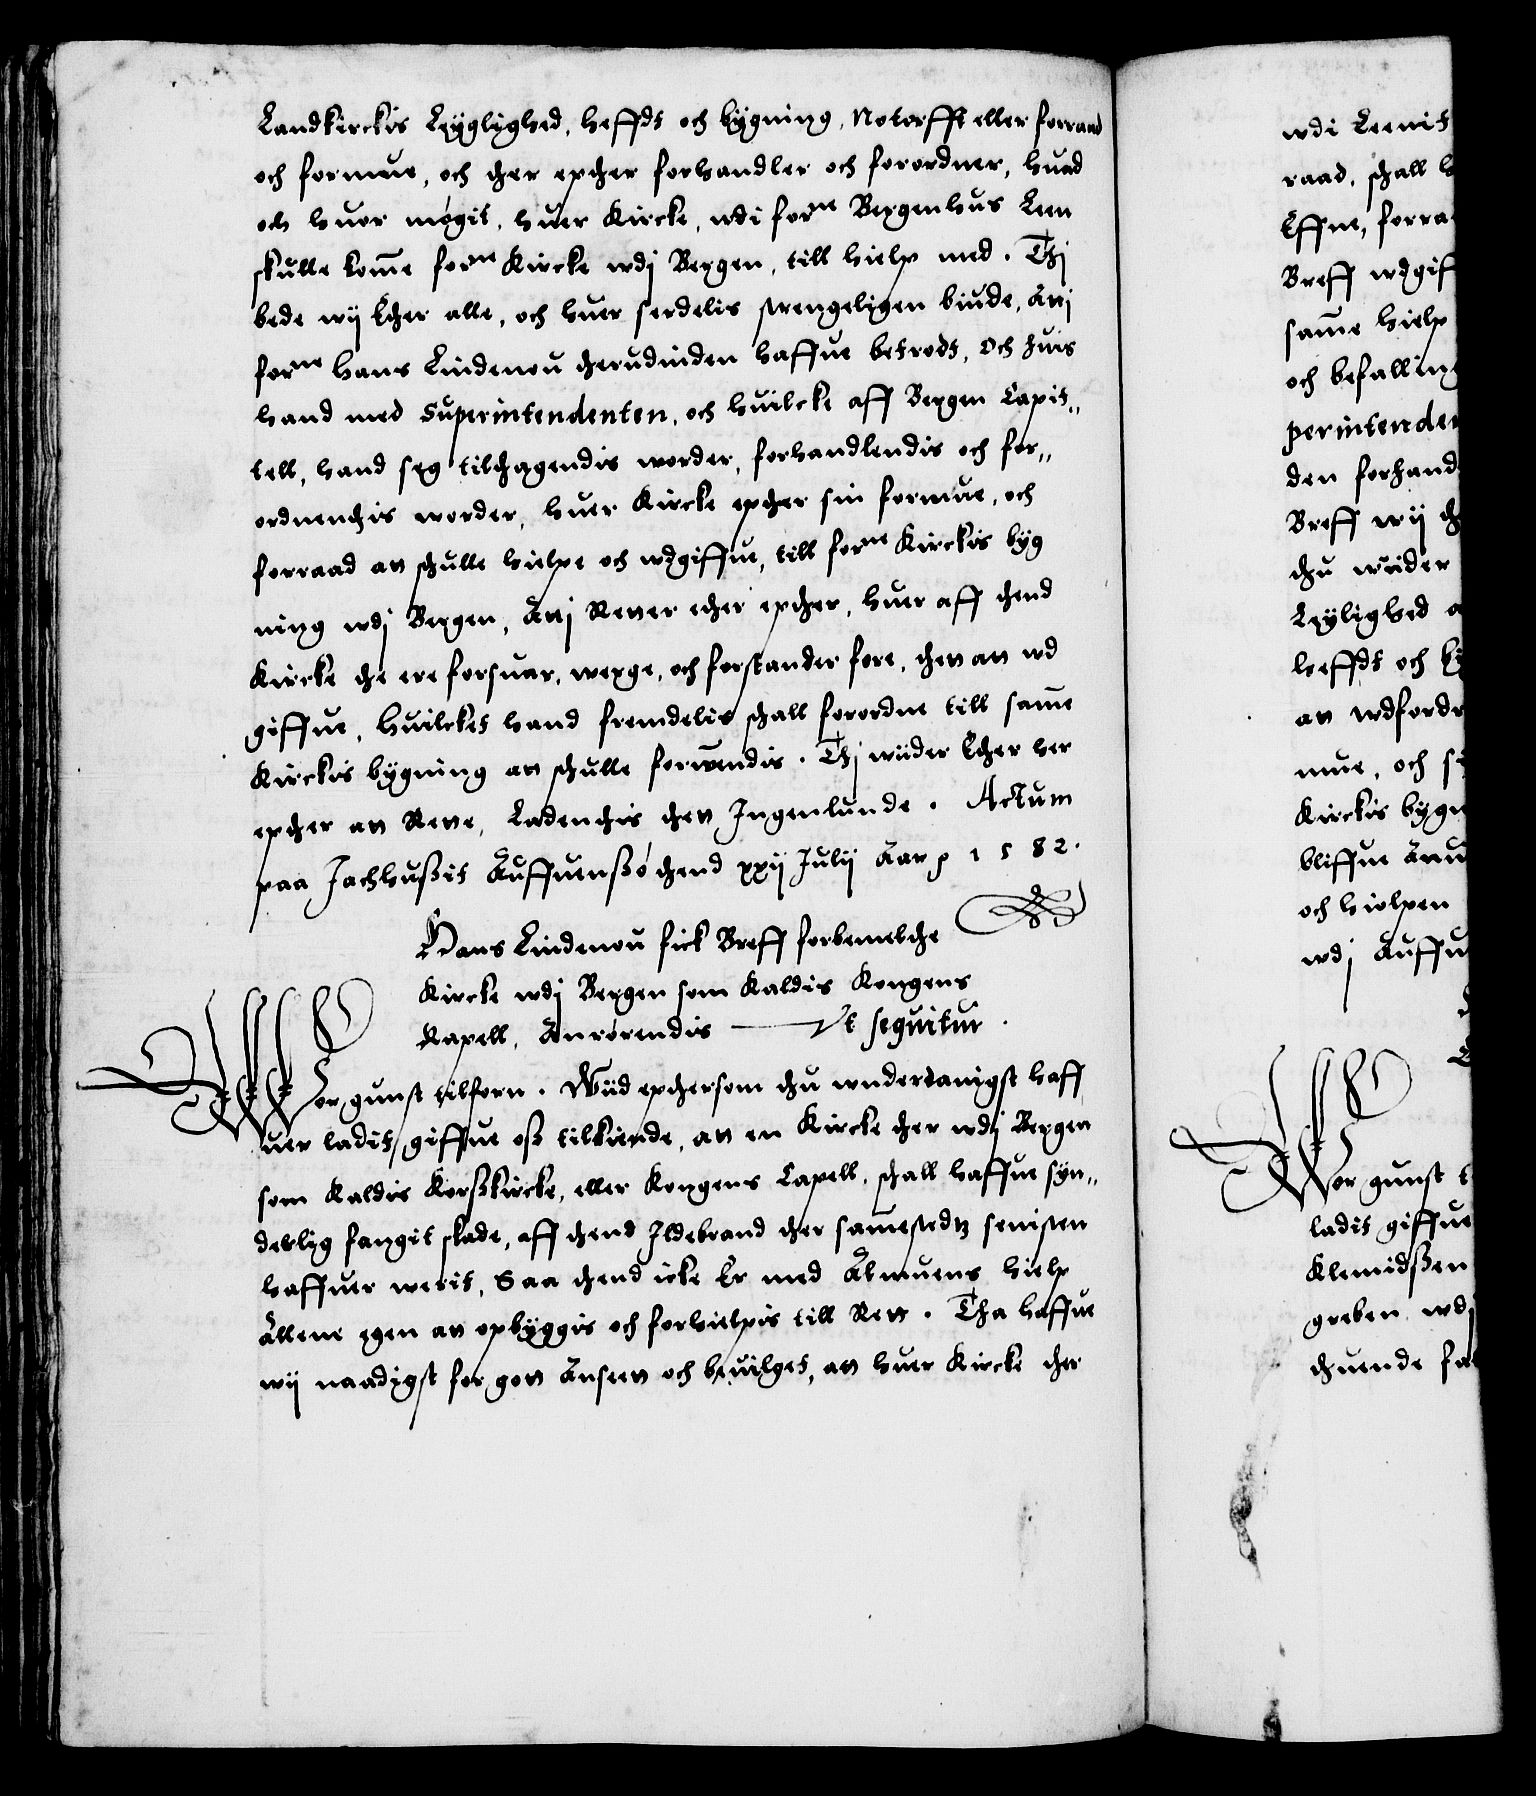 Landkirckis Leÿglighed, hefft och bÿgning, Notorfft eller forraad
och formue, och ther epther forhandler och forordner, huad
och huor mögit, huer Kircke, wdi forne Bergenhus Leen
skulle komme forne Kircke wdj Bergen, till hielp med. Thj
bede wij Ether alle, och huer serdelis strengeligen biude, Att j
forne Hans Lindenou therudinden haffue betrodt, Och huis
hand med Superintendenten, och huilcke aff Bergen Capit,,
tell, hand seg tilthagendis worder, forhandlendis och for,,
ordnenthis worder, huer Kircke epther sin formue, och
forraad att schulle hielpe och wdgiffue, till forne Kirckis byg
ning wdj Bergen, Att j Retter ether epther, huer aff thend
Kircke the ere forsuar, werge, och forstander fore, thet att wd
giffue, Huilcket hand fremdelis schall forordne till same
Kirckis bÿgning att schulle forwendis. Thj wiider Ether her
epther att Rette, Ladenthis thet Ingenlunde. Actum
paa Jachhußit Kuffuensßö thend xxij Julij Aar p 1582.
Hans Lindenou fick Breff forbemelthe
Kircke wdj Bergen som Kaldis Kongens
Kapell, Anrörendis Vt sequitur.
Wor gunst tilforn. Wiid epthersom thu wnderdanigst haff
uer ladit giffue oß tilkiende, att en Kircke ther wdj Bergen
som Kaldis Korßkircke, eller Kongens Capell, schall haffue sÿn,,
derlig fangit skade, aff thend Ildebrand ther samestedtz senisten
haffuer werit, Saa thend icke Er med Almuens hielp
Allene igen att opbÿggis och forhielpis till Rett. Tha haffue
wij naadigst for gott Anseet och beuilget, att huer Kircke ther
wdi Leenit
raad, schall
Effne, forra
Breff wdgif
same hielp
och befalling
perintenden
den forhand
Breff wij th
thu wiider
Leÿlighed
hefft och
att wdfordr
mue, och
Kirckis bÿgn
bliffue
och hielpen
wdj Kuffu
Wor gunst
ladit giffue
Klemidßen
greben wdj
thuende